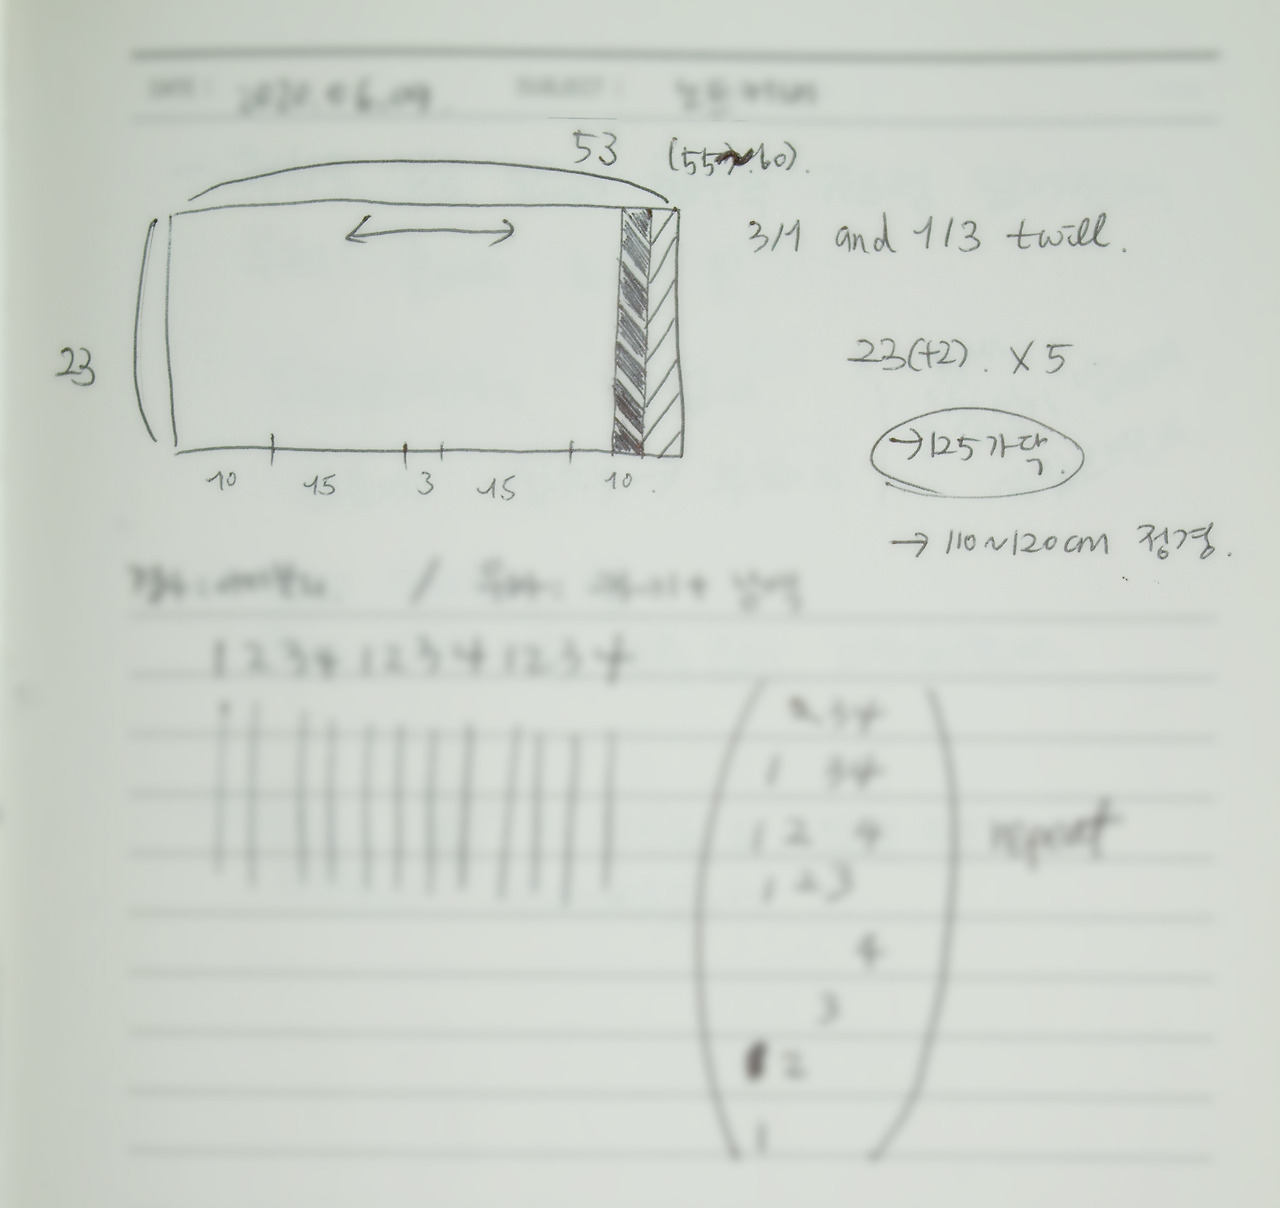 DATE : 2020.06.09 SUBJECT :
53 (55~60).
3/1 and 1/3 twill.
23
23(+2). X 5
→125가닥.
10 15 3 15 10.
→ 110~120cm 정경.
/
1 2 3 4 1 2 3 4 1 2 3 4
2 3 4
1 3 4
1 2 4
repeat
1 2 3
4
3
2
1